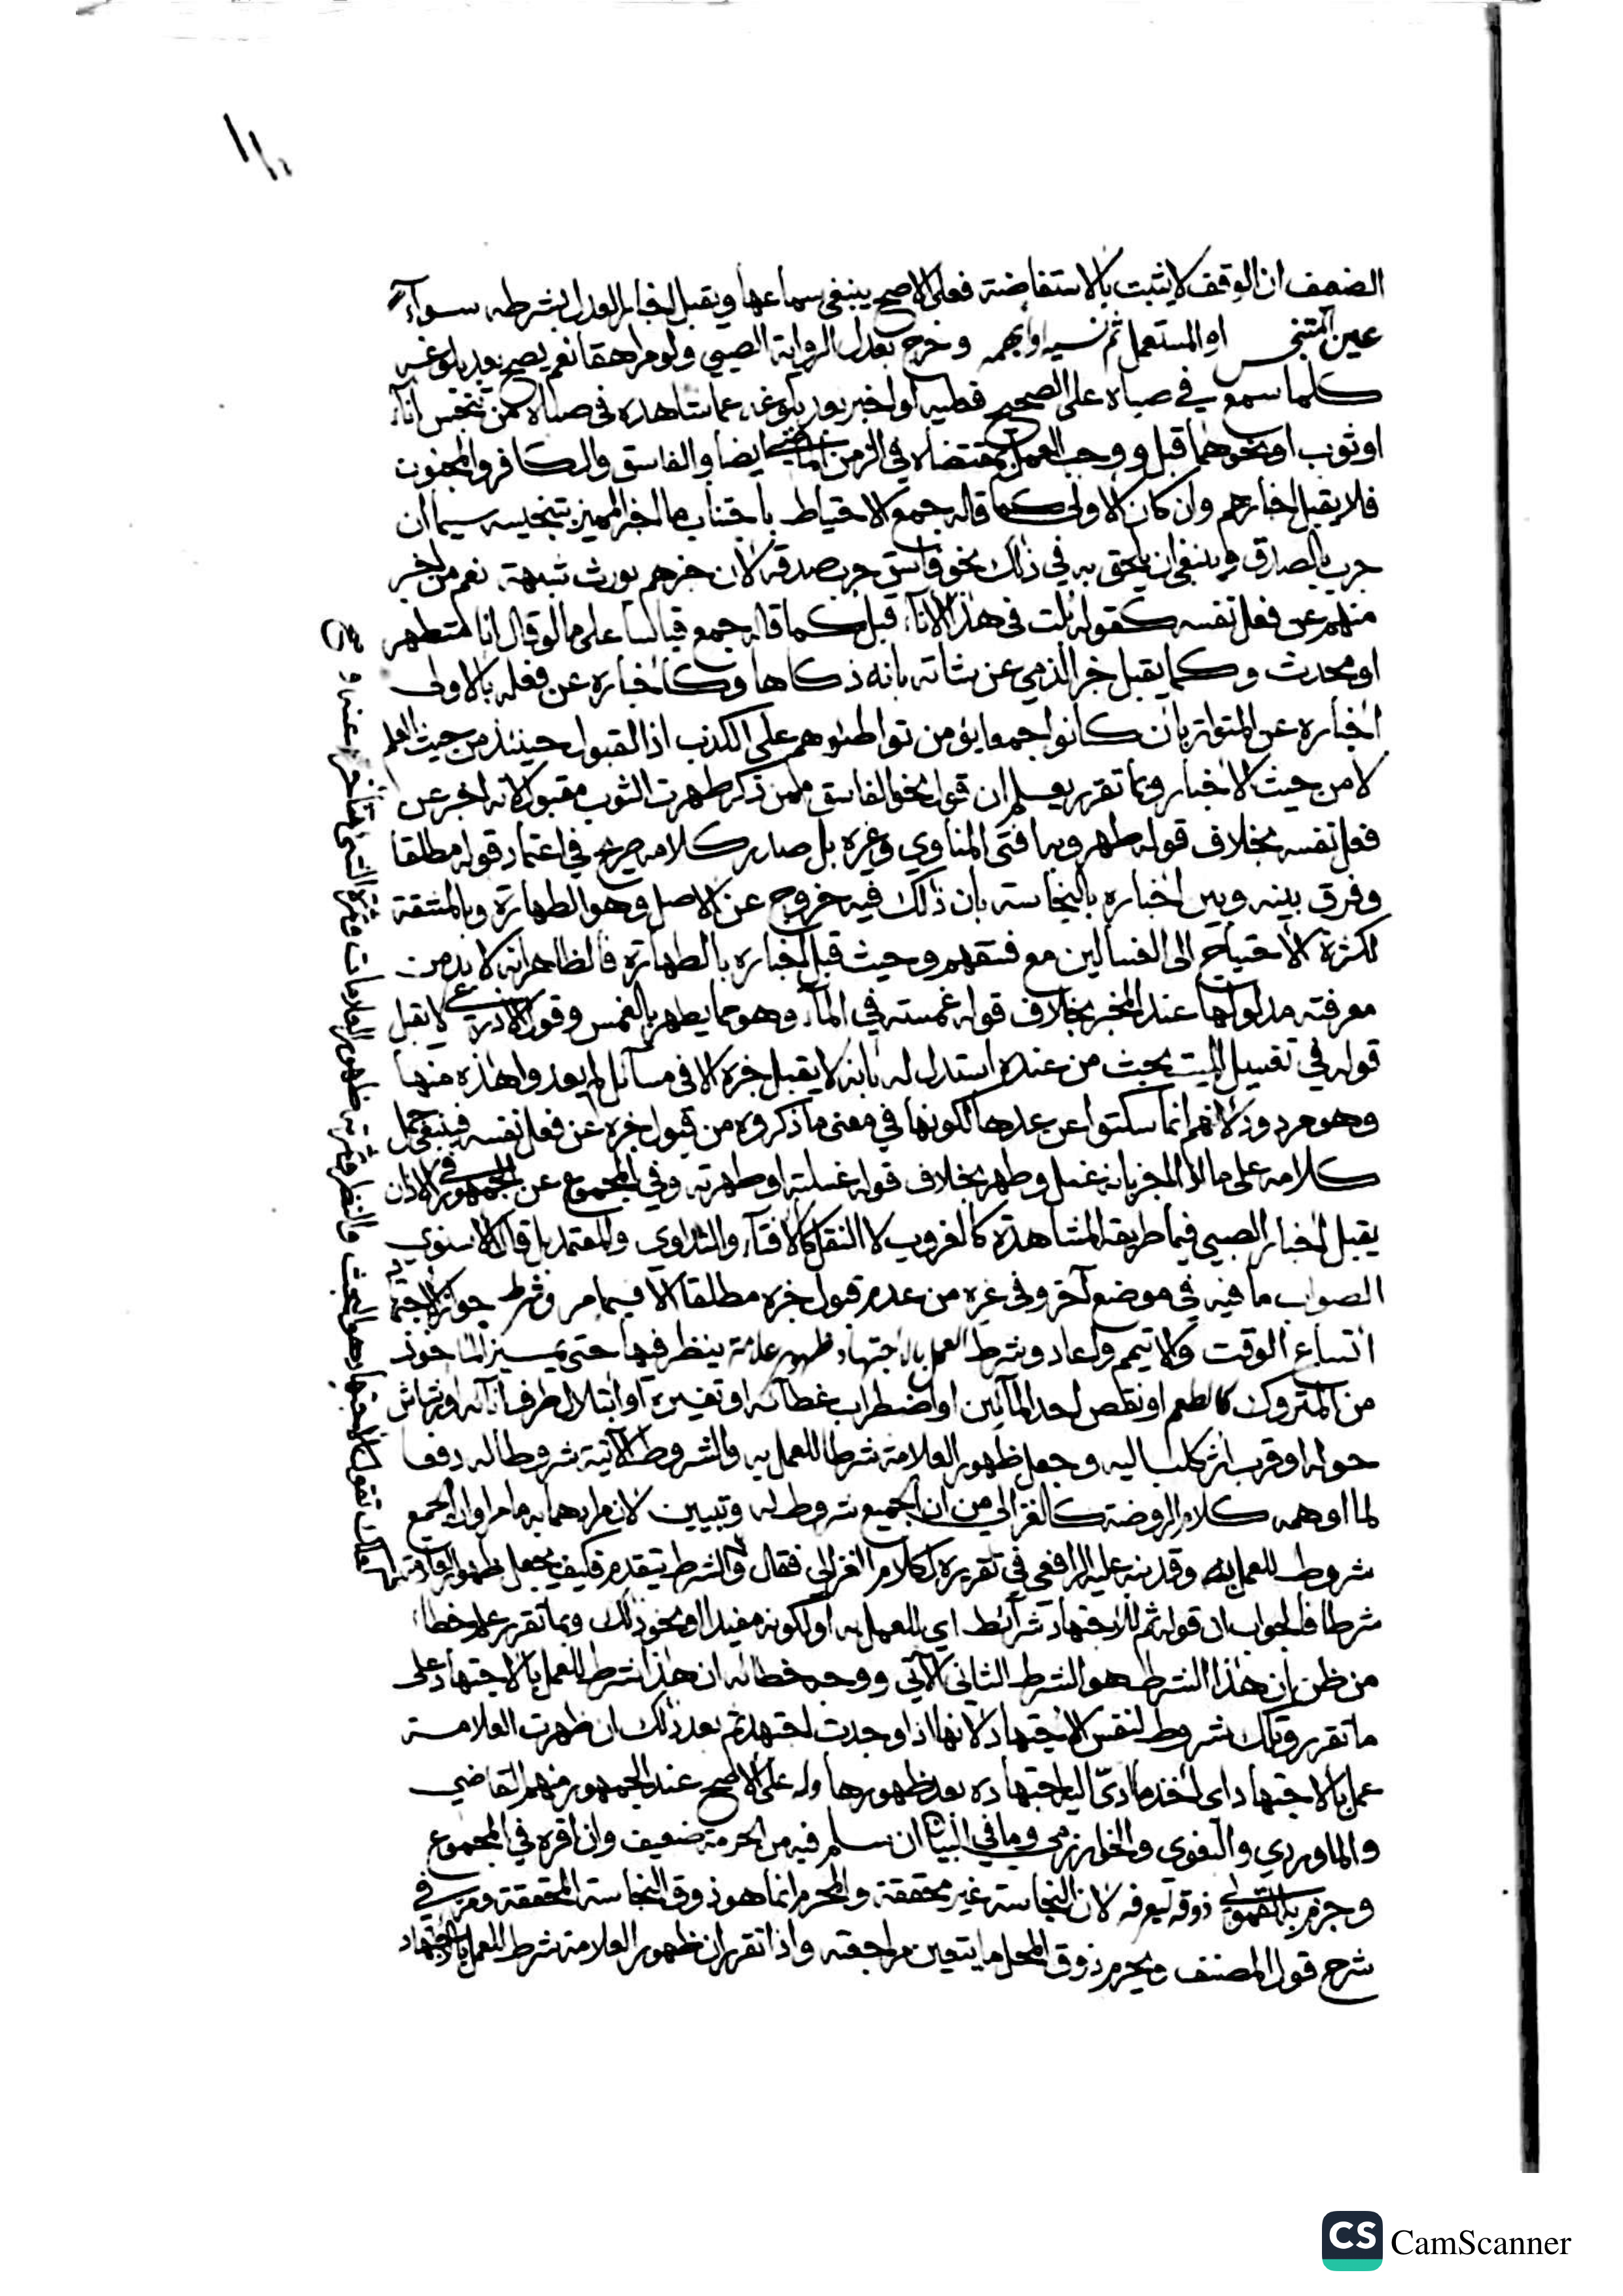 الضعف ان الوقف لا يثبت بالاستفاضة فعلى الاصح ينبغي سماعها ويقبل اخبار العدل بشرطه سوآء
عين المتنجس او المستعمل ثم نسيه او ابهمه وخرج بعدل الرواية الصبي ولو مراهقا نعم يصح بعد بلوغه
كلما سمع في صباه على الصحيح فعليه لو اخبر بعد بلوغه عما شاهده في صباه من تنجس انآء
او ثوب او نحوهما قبل ووجب العمل بمقتضاه في الزمن الماضي ايضا والفاسق والكافر والمجنون
فلا يقبل اخبارهم وان كان الاولى كما قاله جمع الاحتياط باجتناب ما اخبر المميز بتنجيسه سيما ان
جرب بالصدق وينبغي ان يلحق به في ذلك نحو فاسق جرب صدقه لان خبرهم يورث شبهة نعم من اخبر
منهم عن فعل نفسه كقوله بلت في هذا الانآء قبل كما قاله جمع قياسا على ما لو قال انا متطهر
او محدث وكما يقبل خبر الذمي عن شاته بانه ذكاها وكاخباره عن فعله بالاولى
اخباره عن المتواتر بان كانوا جمعا يؤمن تواطئوهم على الكذب اذ القبول حينئذ من حيث العلم
لا من حيث الاخبار وبما تقرر يعلم ان قول نحو الفاسق ممن ذكر طهرت الثوب مقبول لانه اخبر عن
فعل نفسه بخلاف قوله طهر وبه افتى المناوي وغيره بل صدر كلامه صريح في اعتماد قوله مطلقا
وفرق بينه وبين اخباره بالنجاسة بان ذلك فيه خروج عن الاصل وهو الطهارة وبالمشقة
لكثرة الاحتياج الى الغسالين مع فسقهم وحيث قبل اخباره بالطهارة فالظاهر انه لا بد من
معرفته مدلولها عند المخبر بخلاف قوله غمسته في المآء وهو مما يطهر بالغمس وقول الاذرعي لا يقبل
قوله في تغسيل الميت بحث من عنده استدل له بانه لا يقبل خبره الا في مسآئل لم يعدوا هذه منها
وهو مردود لانهم انما سكتوا عن عدها لكونها في معنى ما ذكروه من قبول خبره عن فعل نفسه فينبغي حمل
كلامه على ما اذا اخبر بانه غسل وطهر بخلاف قوله غسلته او طهرته وفي المجموع عن الجمهور في الاذان
يقبل اخبار الصبي فيما طريقه المشاهدة كالغروب لا النقل كالافتآء والتداوي والمعتمد بل قال الاسنوي
الصواب ما فيه في موضع آخر وفي غيره من عدم قبول خبره مطلقا الا فيما مر وشرط جواز الاجتهاد
اتساع الوقت والا تيمم واعاد وشرط العمل بالاجتهاد ظهور علامة ينظر فيها حتى يميز الماخوذ
من المتروك كالطعم او نقص احد المآئين او اضطراب غطآئه او تغيره او ابتلال طرف انآئه او رشاش
حوله او قرب اثر كلب اليه وجعل ظهور العلامة شرطا للعمل به والشروط الآتية شروطا له دفعا
لما اوهمه كلام الروضة كالغزالي من ان الجميع شروط له وتبيين لان مرادهما به ما مر او ان الجميع
شروط للعمل به وقد نبه عليه الرافعي في تقريره لكلام الغزالي فقال والشرط يتقدم فكيف يجعل ظهور العلامة
شرطا فالجواب ان قوله ثم للاجتهاد شرآئط اي للعمل به او لكونه مفيدا او نحو ذلك وبما تقرر علم خطاء
من ظن ان هذا الشرط هو الشرط الثاني الآتي ووجه خطائه ان هذا شرط للعمل بالاجتهاد على
ما تقرر وتلك شروط لنفس الاجتهاد لانها اذا وجدت اجتهد ثم بعد ذلك ان ظهرت العلامة
عمل بالاجتهاد اي اخذ ما ادى اليه اجتهاده بعد ظهورها وله على الاصح عند الجمهور منهم القاضي
والماوردي والبغوي والخوارزمي وما في البيان ان سلم فيه من الحرمة ضعيف وان اقره في المجموع
وجزم به القمولي ذوقه ليعرفه لان النجاسة غير محققة والمحرم انما هو ذوق النجاسة المحققة ومر في
شرح قول المصنف ويحرم ذوق المحل ما يتعين مراجعته واذا تقرر ان ظهور العلامة شرط للعمل بالاجتهاد